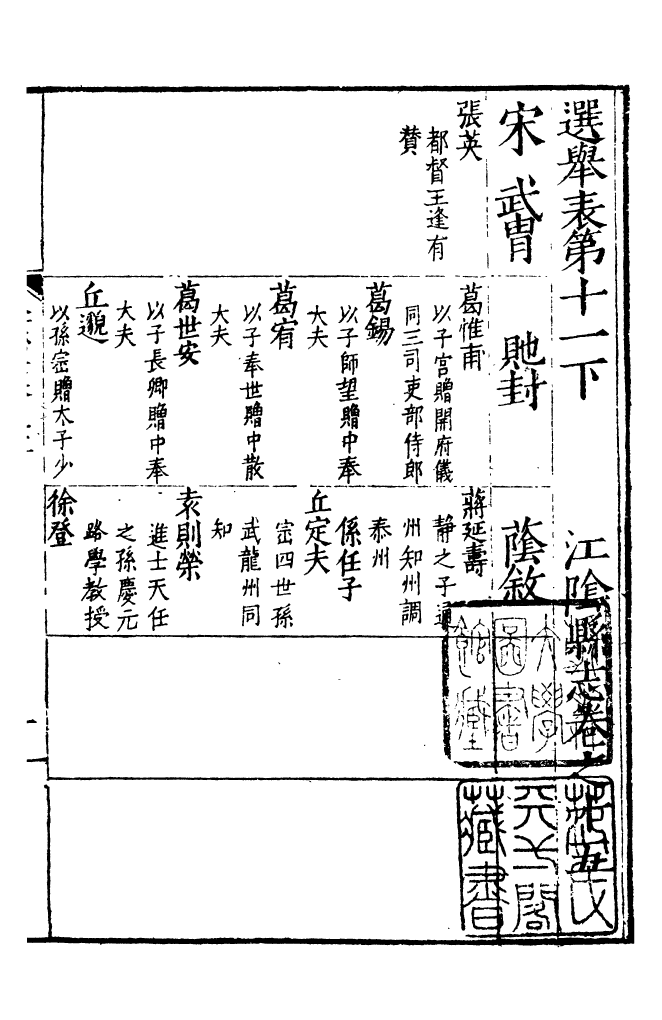 選舉表第十一下　江陰縣志卷之十五
宋　武胄　貤封　蔭敘
張英
都督王逢有
贊
葛惟甫
以子宮贈開府儀
同三司吏部侍郎
葛錫
以子師望贈中奉
大夫
葛宥
以子奉世贈中散
大夫
葛世安
以子長卿贈中奉
大夫
丘邈
以孫崈贈太子少
蔣延壽
靜之子通
州知州調
泰州
係任子
丘定夫
崈四世孫
武龍州同
知
袁則榮
進士天任
之孫慶元
路學教授
徐登
大學
圖書
館藏
范氏
天一閣
藏書